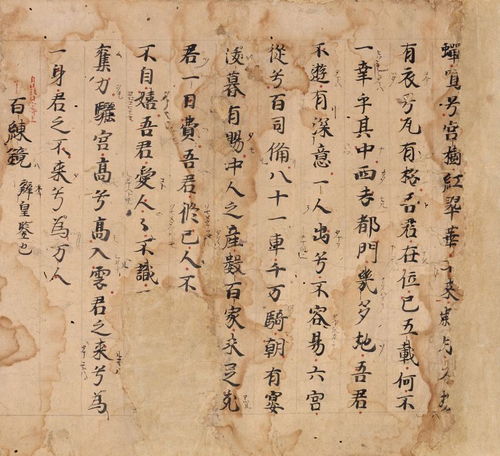 蟬鳴兮宮樹紅翠華不来歳月久
有衣兮瓦有松吾君在位已五載何不
一幸乎其中西去都門幾多地吾君
不遊有深意一人出兮不容易六宮
從兮百司俻八十一車千万騎朝有宴
暮有賜中人之産數百家未足充
君一日費吾君修已人不
不自嬉吾君愛人〻不識
力驪宮高兮高入雲君之来兮為
一身君之不来兮為万人
百練鏡 辨皇鑒也